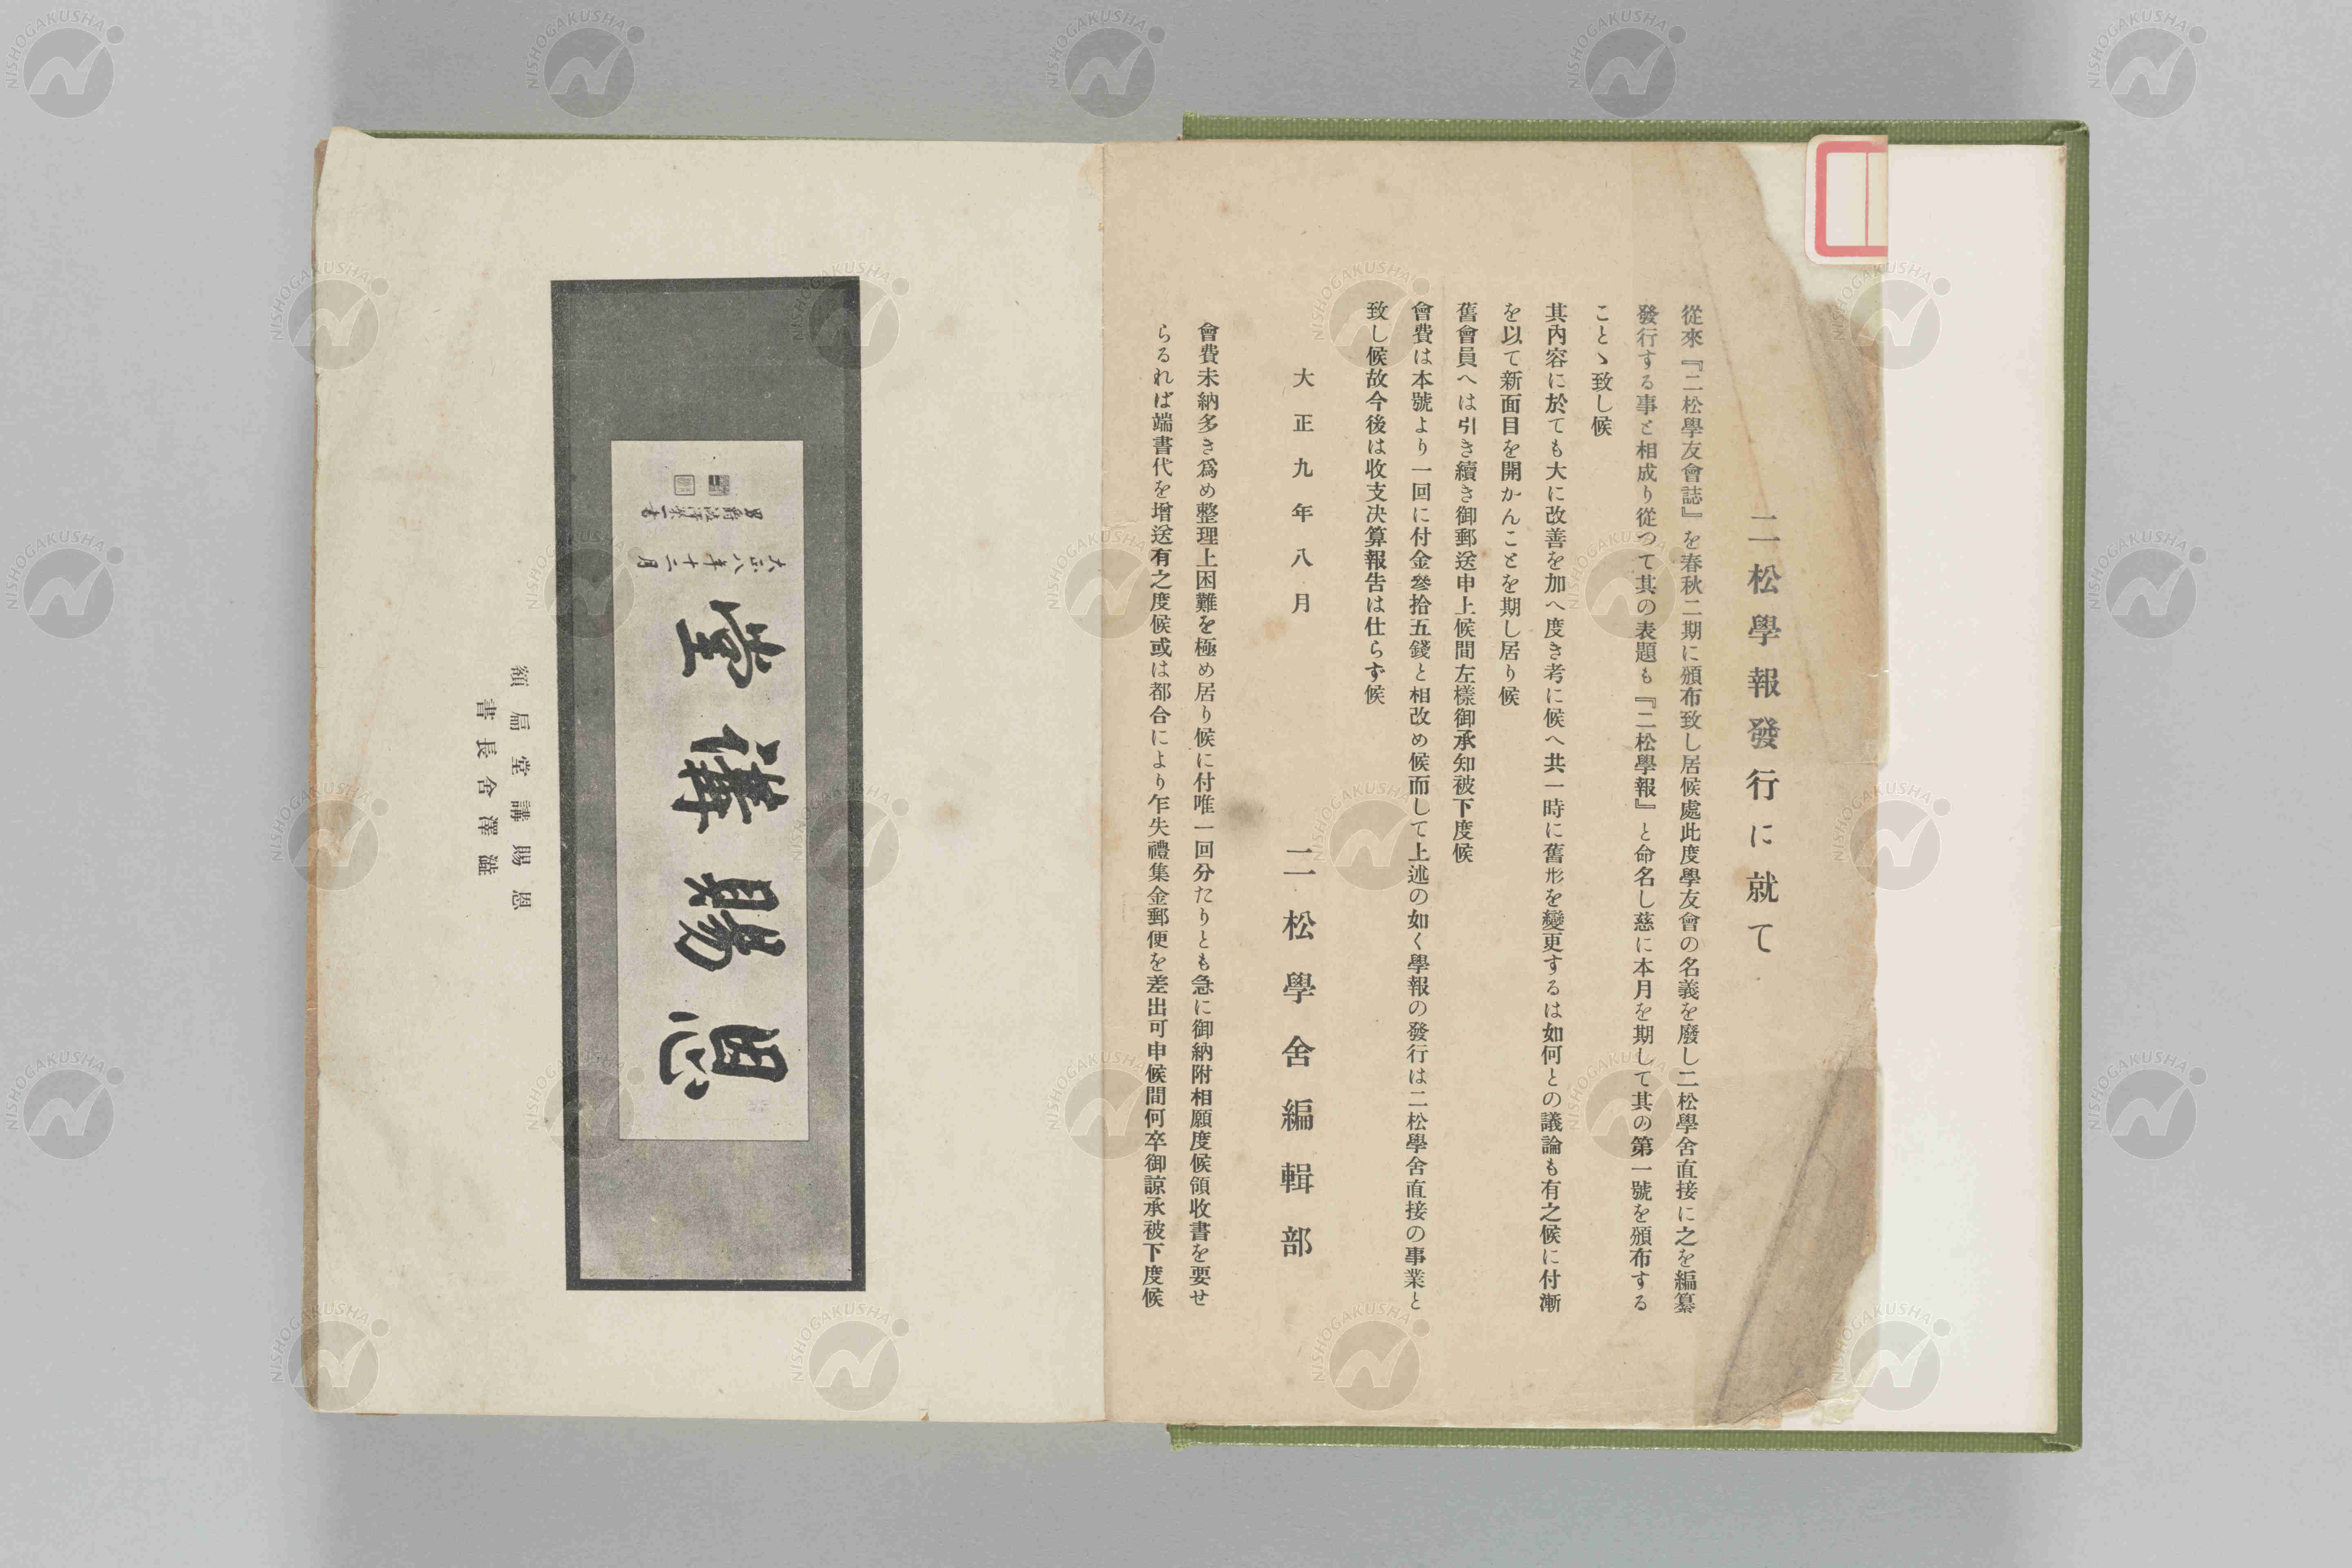 二松學報發行に就て
從來『二松學友會誌』を春秋二期に頒布致し居候處此度學友會の名義を廢し二松學舍直接に之を編纂
發行する事と相成り從つて其の表題も『二松學報』と命名し慈に本月を期して其の第一號を頒布する
ことゝ致し候
其內容に於ても大に改善を加へ度き考に候へ共一時に舊形を變更するは如何との議論も有之候に付漸
を以て新面目を開かんことを期し居り候
舊會員へは引き續き御郵送申上候間左樣御承知被下度候
會費は本號より一回に付金參拾五錢と相改め候而して上述の如く學報の發行は二松學舍直接の事業と
致し候故今後は收支決算報告は仕らず候
大正九年八月
二松學舍編輯部
會費未納多き爲め整理上困難を極め居り候に付唯一回分たりとも急に御納附相願度候領收書を要せ
らるれば端書代を增送有之度候或は都合により乍失禮集金郵便を差出可申候間何卒御諒承被下度候
恩賜講堂
大正八年十二月
男爵澁澤榮一書
恩賜講堂扁額
澁澤舍長書
NISHOGAKUSHA